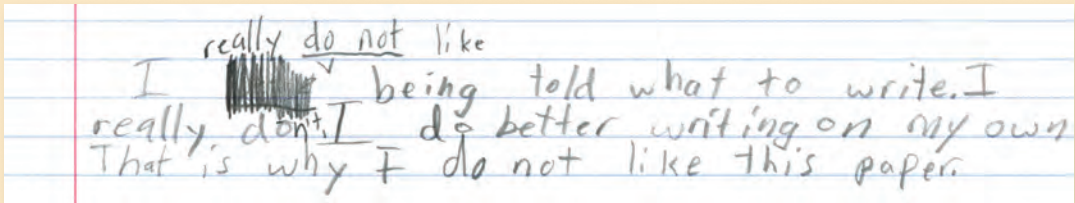 really do not like
I being told what to write. I
really don't. I do better writing on my own
That is why I do not like this paper.